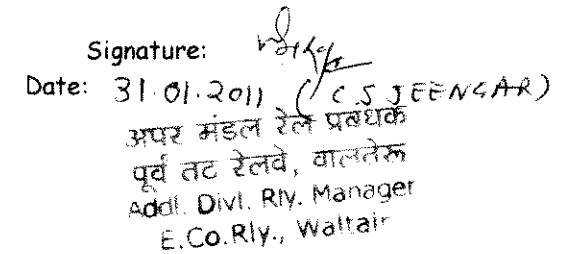 Signature:
Date: 31.01.2011 (C S JEENGAR)
अपर मंडल रेल प्रबंधक
पूर्व तट रेलवे, वालतेरु
Addl. Divl. Rly. Manager
E.Co.Rly., Waltair